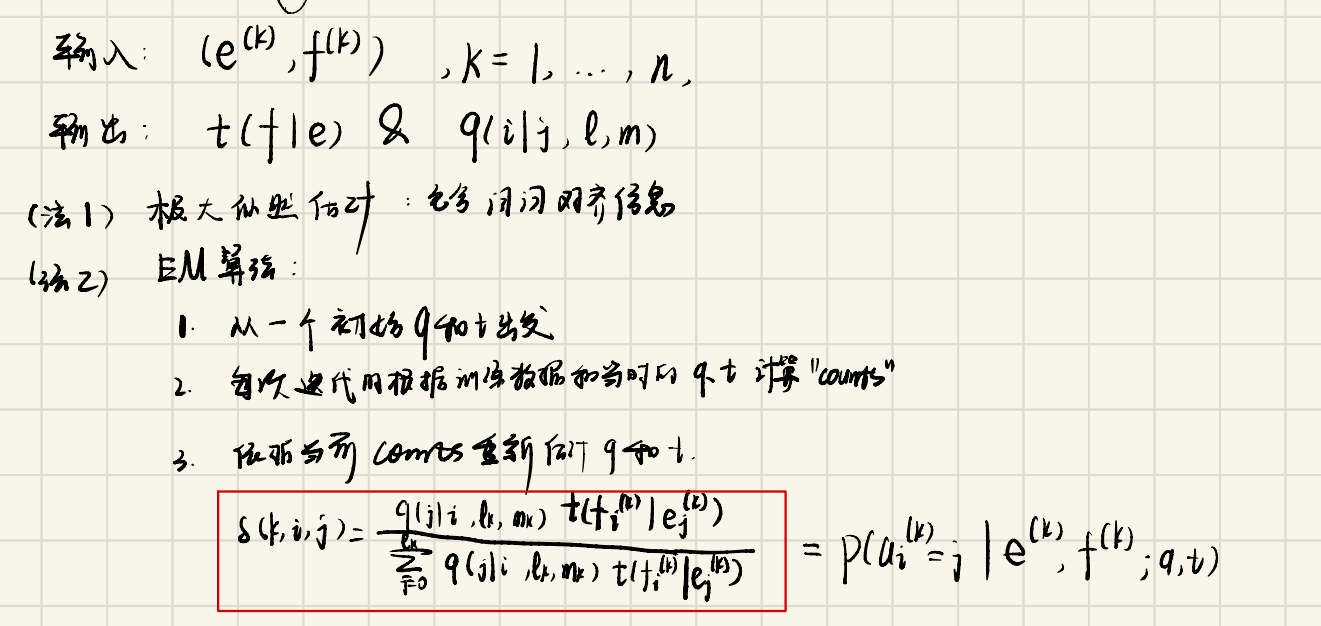 输入: (e^(k), f^(k)) , k = 1, ..., n,
输出: t(f|e) & q(i|j, l, m)
(法1) 极大似然估计 : 包含词词对齐信息
(法2) EM算法:
1. 从一个初始q和t出发
2. 每次迭代时根据训练数据和当时的 q,t 计算 "counts"
3. 依据当前 counts 重新估计 q和t.
δ(k,i,j) = q(j|i, l_k, m_k) t(f_i^(k) | e_j^(k)) / Σ_{j=0}^{l_k} q(j|i, l_k, m_k) t(f_i^(k) | e_j^(k)) = p(a_i^(k) = j | e^(k), f^(k); q, t)